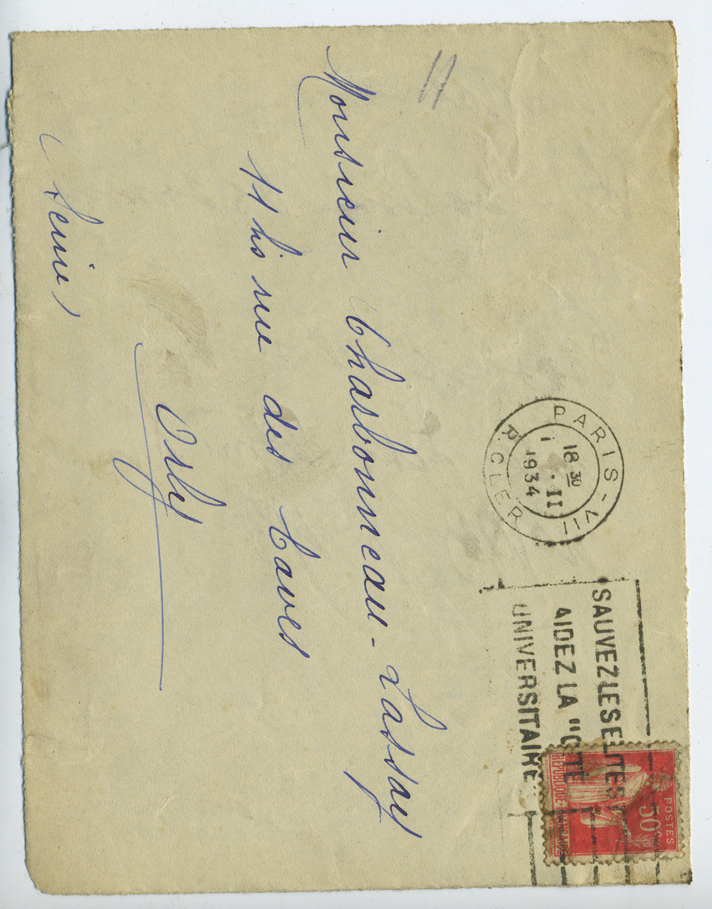 PARIS-VII
18 30
1 . II
1934
R. CLER
SAUVEZ LES ELITES
AIDEZ LA "CITE
UNIVERSITAIRE
POSTES
50c
Monsieur Charbonneau-Lassay
11 bis rue des Caves
Orly
(Seine)